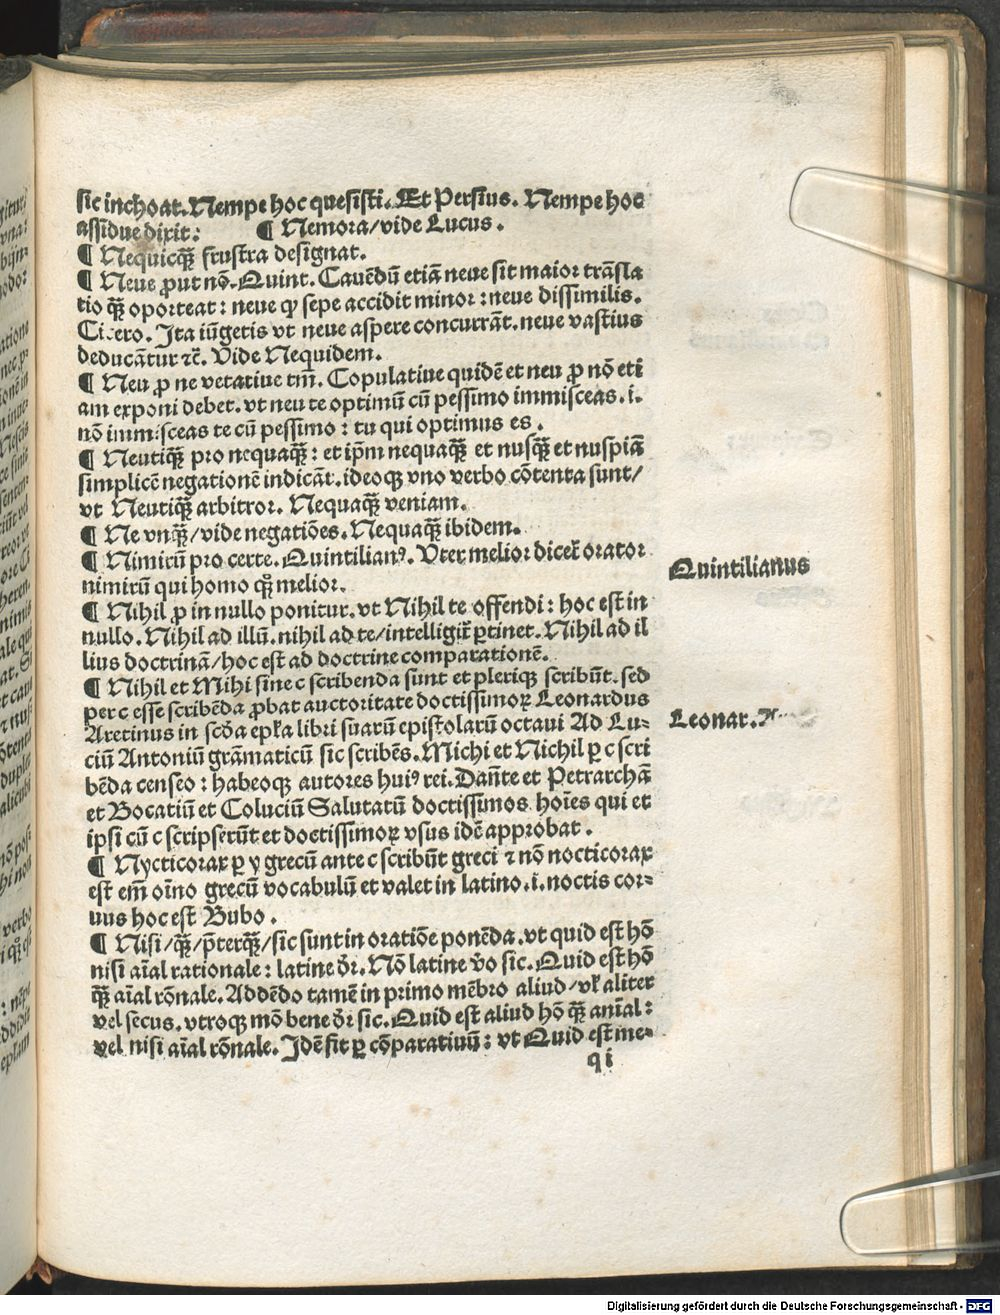 sic inchoat. Nempe hoc quesisti. Et Persius. Nempe hoc
assidue dixit: ¶ Nemora/vide Lucus.
¶ Nequicq̃ frustra designat.
¶ Neue ꝓut nō. Quint. Cauēdū etiā neue sit maior trãsla
tio q̃ oporteat: neue ꝙ sepe accidit minor: neue dissimilis.
Cicero. Ita iūgetis vt neue aspere concurrāt. neue vastius
deducātur ⁊č. Vide Nequidem.
¶ Neu ꝓ ne vetatiue tm̄. Copulatiue quidē et neu ꝓ nō eti
am exponi debet. vt neu te optimū cū pessimo immisceas. i.
nō immisceas te cū pessimo: tu qui optimus es.
¶ Neutiq̃ pro nequaq̃: et ip̄m nequaq̃ et nusq̃ et nuspiā
simplicē negationē indicāt. ideoqꝫ vno verbo cōtenta sunt/
vt Neutiq̃ arbitror. Nequaq̃ veniam.
¶ Ne vnq̃/vide negatiōes. Nequaq̃ ibidem.
¶ Nimirū pro certe. Quintilianꝰ. Vter melior diceř orator
nimirū qui homo q̃ melior.
¶ Nihil ꝓ in nullo ponitur. vt Nihil te offendi: hoc est in
nullo. Nihil ad illū. nihil ad te/intelligiť ꝑtinet. Nihil ad il
lius doctrinā/hoc est ad doctrine comparationē.
¶ Nihil et Mihi sine c scribenda sunt et pleriqꝫ scribūt. sed
per c esse scribēda ꝓbat auctoritate doctissimoꝝ Leonardus
Aretinus in scďa epľa libri suarū epistolarū octaui Ad Lu-
ciū Antoniū grāmaticū sic scribēs. Michi et Nichil ꝑ c scri
bēda censeo: habeoqꝫ autores huiꝰ rei. Dañte et Petrarchā
et Bocatiū et Coluciū Salutatū doctissimos hoīes qui et
ipsi cū c scripserūt et doctissimoꝝ vsus idē approbat.
¶ Nycticorax ꝑ y grecū ante c scribūt greci ⁊ nō nocticorax
est em̄ oīno grecū vocabulū et valet in latino. i. noctis cor-
uus hoc est Bubo.
¶ Nisi/q̃/p̄terq̃/sic sunt in oratiōe ponēda. vt quid est hō
nisi aīal rationale: latine ďr. Nō latine v̄o sic. Quid est hō
q̃ aīal rōnale. Addēdo tamē in primo mēbro aliud/vľ aliter
vel secus. vtroqꝫ mō bene ďr sic. Quid est aliud hō q̃ anīal:
vel nisi aīal rōnale. Idē fit ꝑ cōparatiuū: vt Quid est me-
q i
Quintilianus
Leonar.
Digitalisierung gefördert durch die Deutsche Forschungsgemeinschaft - DFG